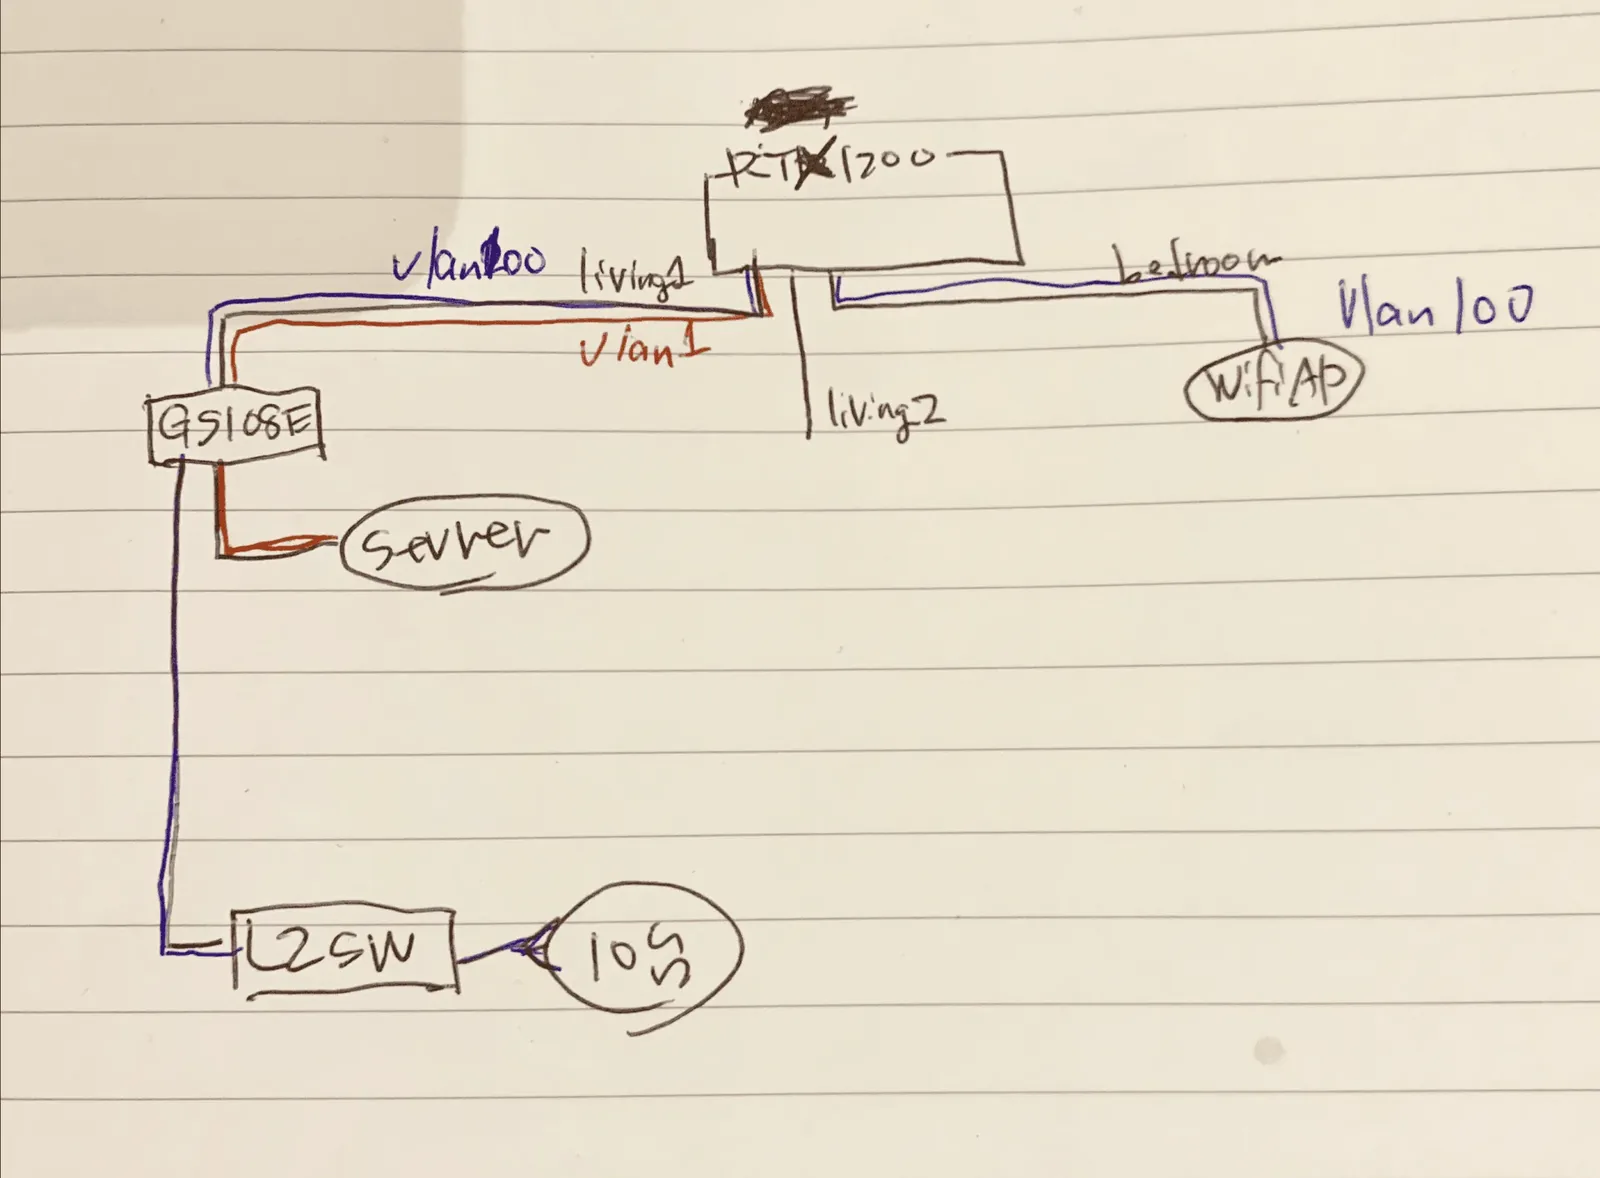 RTX1200
vlan100
living1
bedroom
vlan1
Vlan100
GS108E
living2
WifiAP
Server
L2SW